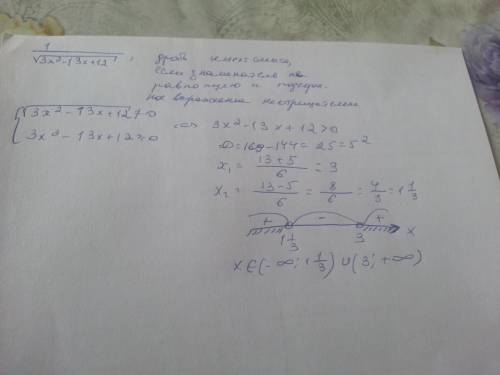 1
√3x²-13x+12 , дробь имеет смысл,
если знаменатель не
равен нулю и подкорен-
ное выражение неотрицательно
{ √3x² - 13x + 12 ≠ 0
3x² - 13x + 12 ≥ 0 <=> 3x² - 13x + 12 > 0
D = 169 - 144 = 25 = 5²
x₁ = (13 + 5)/6 = 3
x₂ = (13 - 5)/6 = 8/6 = 4/3 = 1 1/3
+ - +
1 1/3 3 x
x ∈ (-∞; 1 1/3) ∪ (3; +∞)